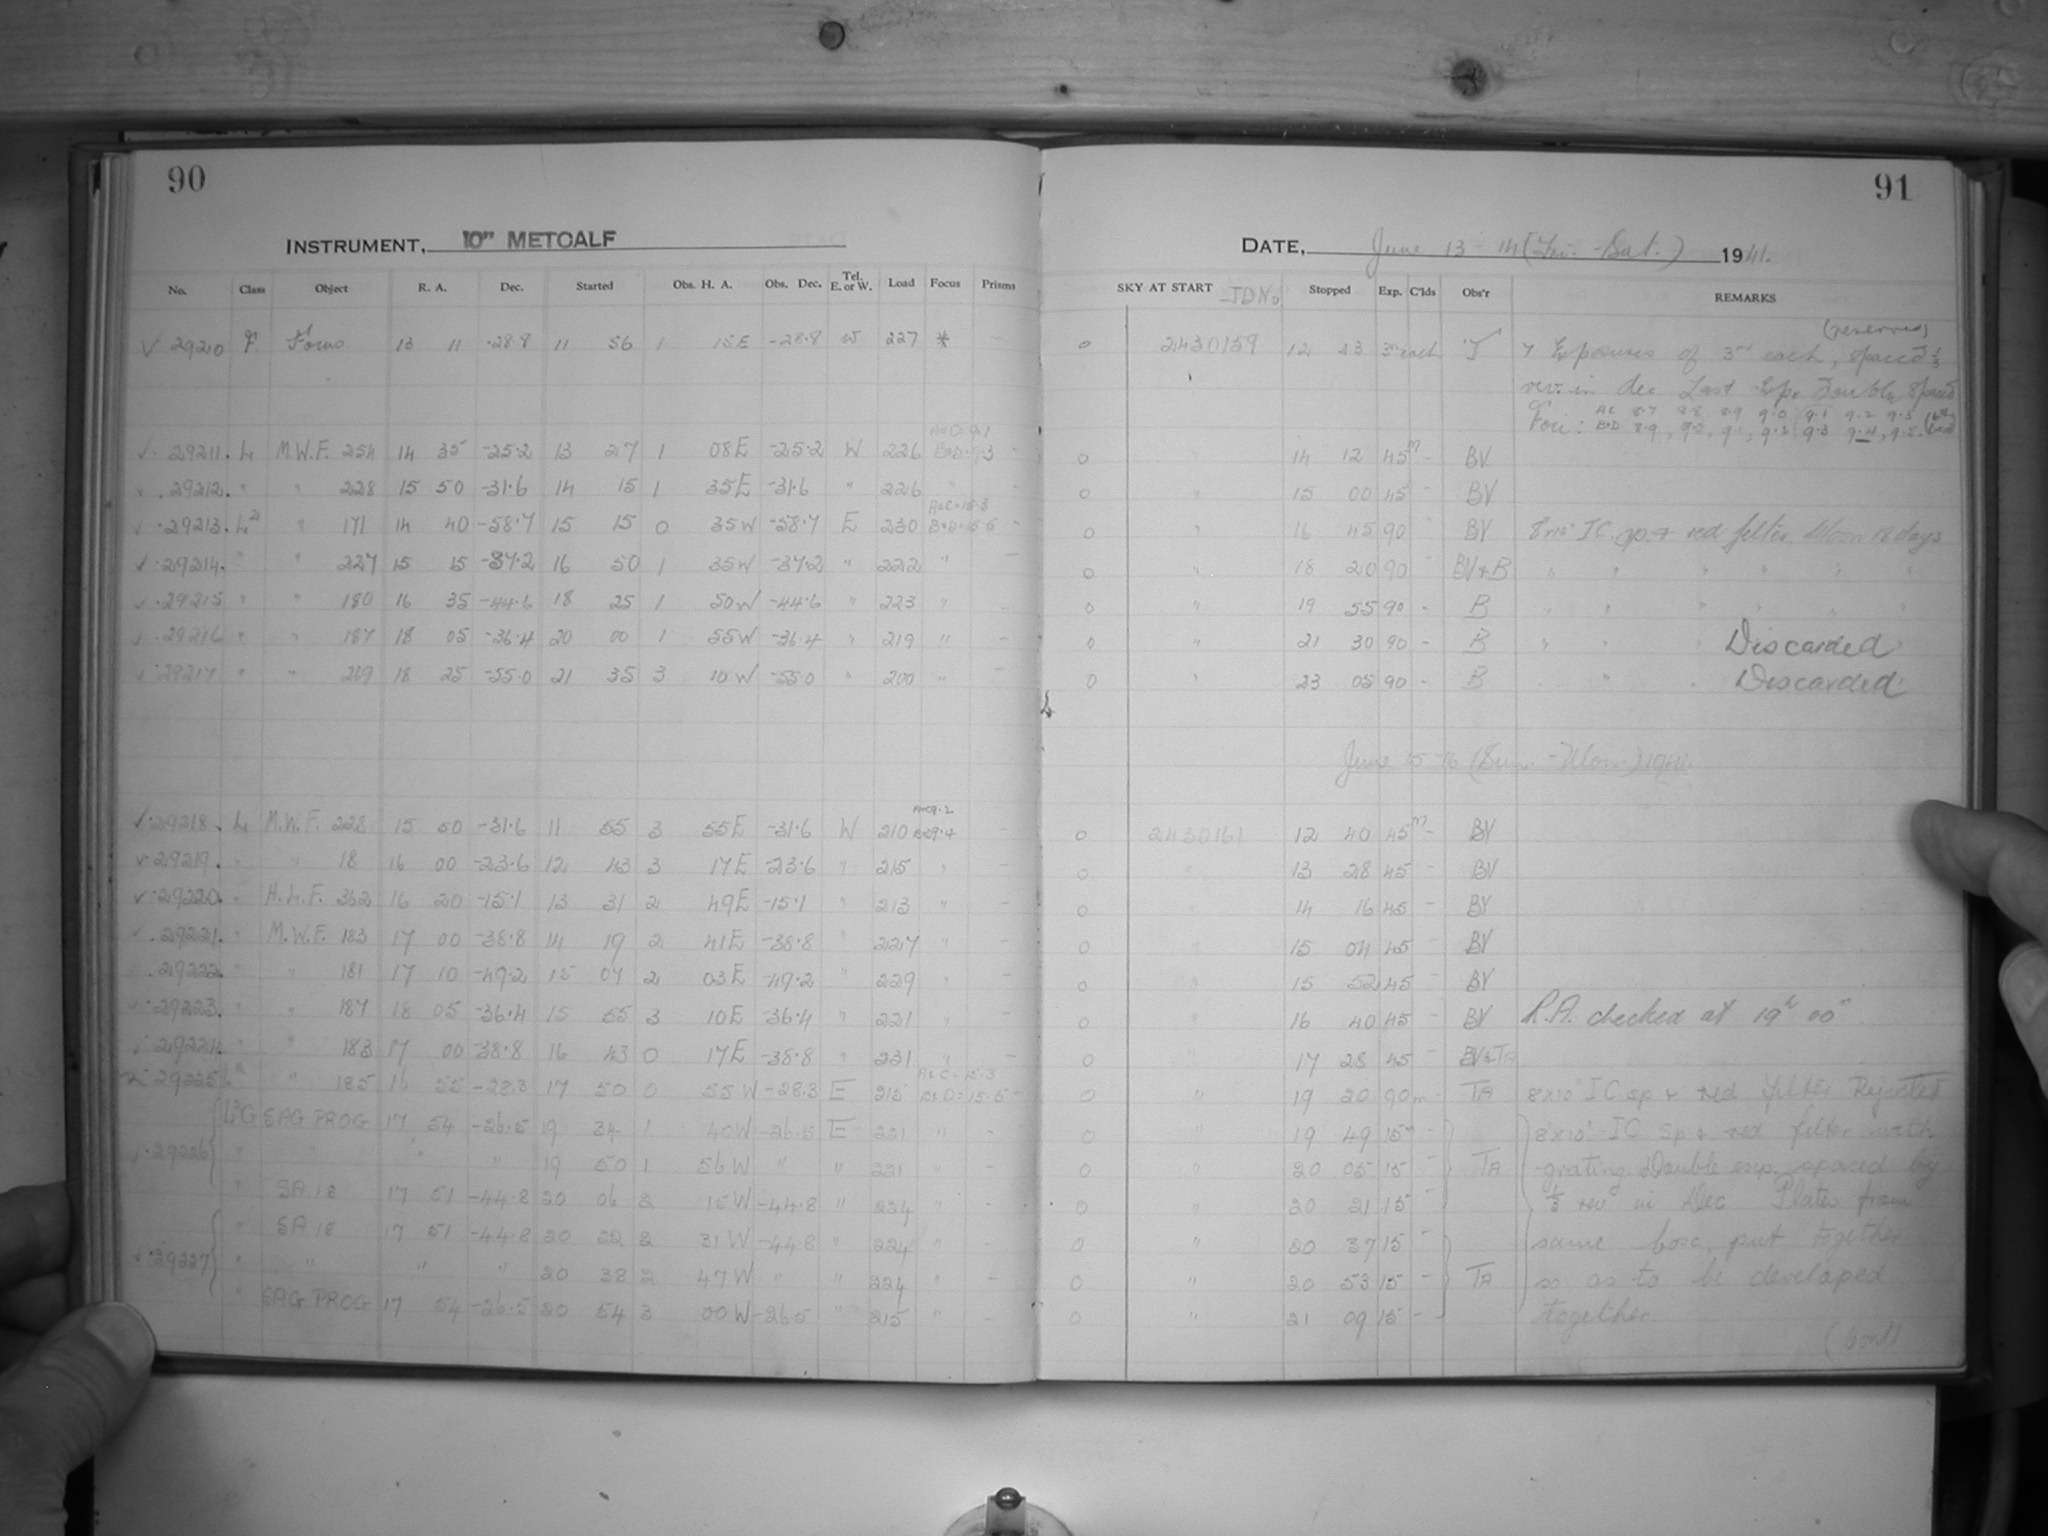 90
INSTRUMENT, 10" METCALF
No. Class Object R. A. Dec. Started Obs. H. A. Obs. Dec. Tel. E. or W. Load Focus Prisms
√ 29210 F Focus 13 11 -28.8 11 56 1 15E -28.8 W 227 * -
√ 29211. L M.W.F. 254 14 35 -25.2 13 27 1 08E -25.2 W 226 A+C=9.1 B+D=9.3 -
√ 29212. " " 228 15 50 -31.6 14 15 1 35E -31.6 " 226 " -
√ 29213. " 171 14 40 -58.7 15 15 0 35W -58.7 E 230 A+C=15.3 B+D=15.5 -
√ 29214. " " 227 15 15 -37.2 16 50 1 35W -37.2 " 222 " -
√ 29215 " " 180 16 35 -44.6 18 25 1 50W -44.6 " 223 " -
√ 29216 " " 187 18 05 -36.4 20 00 1 55W -36.4 " 219 " -
√ 29217 " " 269 18 25 -55.0 21 35 3 10W -55.0 " 200 " -
√ 29218. L M.W.F. 228 15 50 -31.6 11 55 3 55E -31.6 W 210 -
√ 29219. " " 18 16 00 -23.6 12 43 3 17E -23.6 " 215 " -
√ 29220. " H.L.F. 362 16 20 -15.1 13 31 2 49E -15.1 " 213 " -
√ 29221. " M.W.F. 183 17 00 -38.8 14 19 2 41E -38.8 " 227 " -
29222. " " 181 17 10 -49.2 15 07 2 03E -49.2 " 229 " -
√ 29223. " " 187 18 05 -36.4 15 55 3 10E -36.4 " 221 " -
29224. " " 183 17 00 -38.8 16 43 0 17E -38.8 " 231 " -
29225 " 185 16 55 -28.3 17 50 0 55W -28.3 E 215 A+C=15.3 B+D=15.5 -
SAG PROG 17 54 -26.5 19 34 1 40W -26.5 E 221 " -
29226 " " " " 19 50 1 56W " " 221 " -
" SA 18 17 51 -44.8 20 06 2 15W -44.8 " 224 " -
" SA 18 17 51 -44.8 20 22 2 31W -44.8 " 224 " -
29227 " " " " 20 38 2 47W " " 224 " -
" SAG PROG 17 54 -26.5 20 54 3 00W -26.5 " 215 " -
91
DATE, June 13-14 (Fri. - Sat.) 1941.
SKY AT START JDNo Stopped Exp. C'lds Obs'r REMARKS
(reserved)
0 2430159 12 23 3m each J 7 Exposures of 3m each, spaced 1/3
rev. in dec Last Exp. Double Spaced
Foci: AC 8.7 8.8 8.9 9.0 9.1 9.2 9.3
B+D 8.9, 9.0, 9.1, 9.2 9.3 9.4, 9.5
0 " 14 12 45m - BV
0 " 15 00 45 - BV
0 " 16 45 90 BV 8x10 IC sp. + red filter. Moon 18 days
0 " 18 20 90 BV+B " " " " " "
0 " 19 55 90 - B " " " " " "
0 " 21 30 90 - B " " " Discarded
0 " 23 05 90 - B " " Discarded
June 15-16 (Sun. - Mon.) 1941.
0 2430161 12 40 45m - BV
0 " 13 28 45 - BV
0 " 14 16 45 - BV
0 " 15 04 45 - BV
0 " 15 52 45 - BV
0 " 16 40 45 - BV R.A. checked at 19h 00m
0 " 17 28 45 - BV+TA
0 " 19 20 90m - TA 8x10 IC sp + red filter Rejected
0 " 19 49 15m - 8x10 IC Sp + red filter with
0 " 20 05 15 - TA grating Double exp. spaced by
0 " 20 21 15 - 1/3 rev in Dec Plates from
0 " 20 37 15 - same box, put together
0 " 20 53 15 - TA so as to be developed
0 " 21 09 15 - together.
(cont)